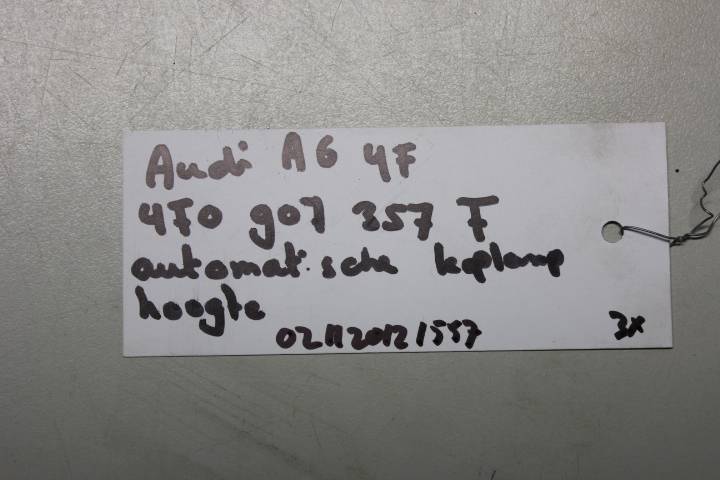 Audi A6 4F
4F0 907 357 F
automatische koplamp
hoogte
021120121557
3x